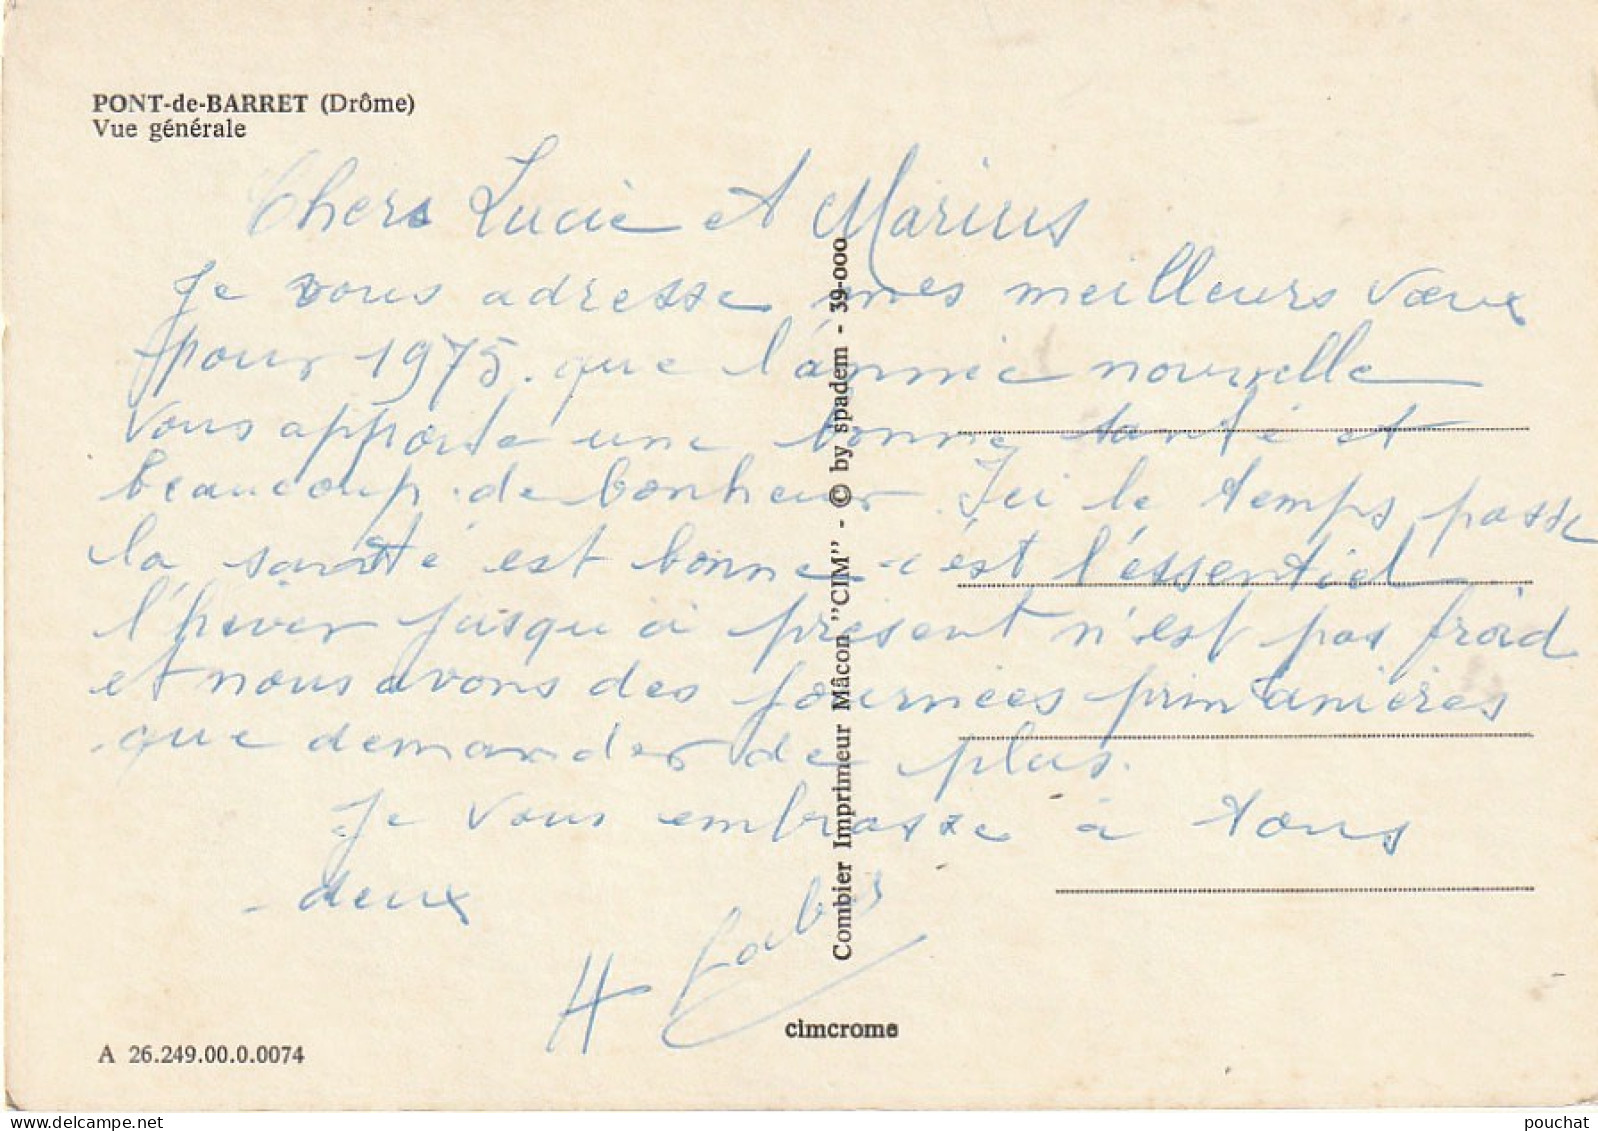 PONT-de-BARRET (Drôme)
Vue générale
Chers Lucie et Marius
Je vous adresse mes meilleurs vœux
pour 1975. que l'année nouvelle
vous apporte une bonne santé et
beaucoup de bonheur. Ici le temps passe
la santé est bonne c'est l'essentiel
l'hiver jusqu'à présent n'est pas froid
et nous avons des journées printanières
que demander de plus.
Je vous embrasse à tous
deux
H
Combier Imprimeur Mâcon "CIM" - © by spadem - 39-000
cimcrome
A 26.249.00.0.0074
delcampe.net
pouchat